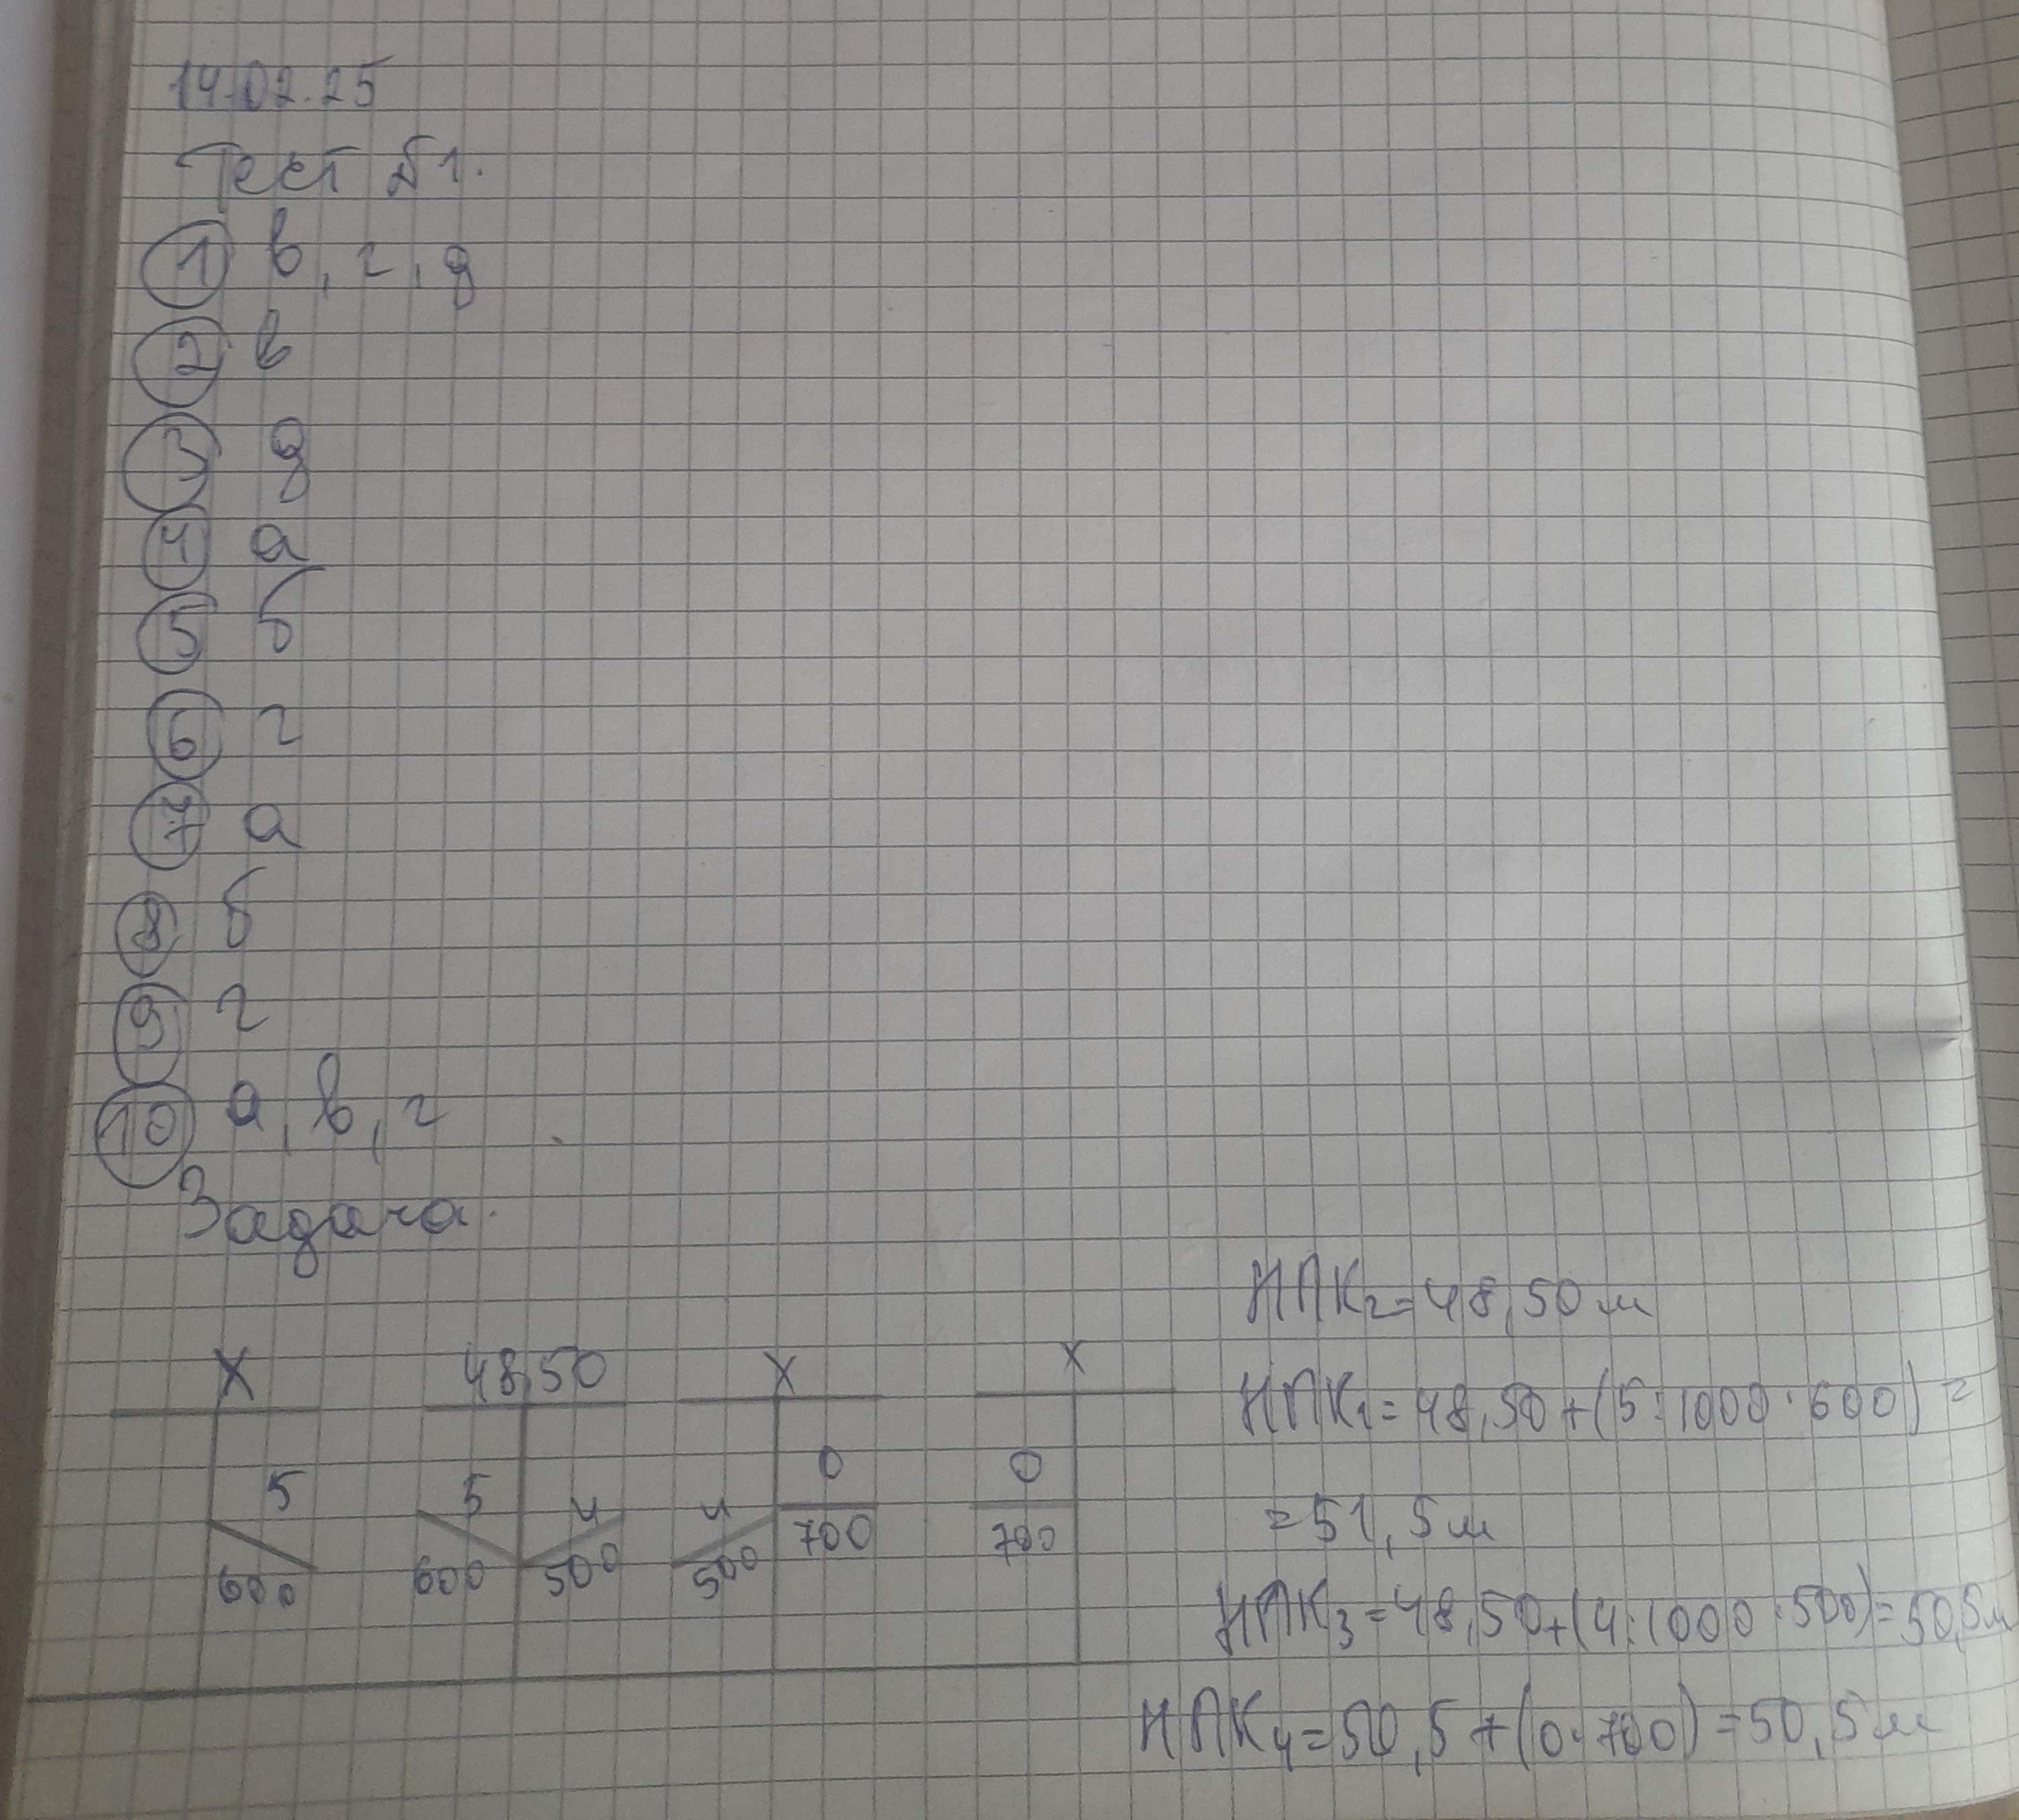 14.02.25
Тест №1.
1 в, г, д
2 в
3 д
4 а
5 б
6 г
7 а
8 б
9 г
10 а, в, г
Задача.
X 48,50 X X
5 5 4 4 0 0
600 600 500 500 700 700
НПК2=48,50 м
НПК1=48,50+(5:1000·600)=
=51,5 м
НПК3=48,50+(4:1000·500)=50,5м
НПК4=50,5+(0·700)=50,5м